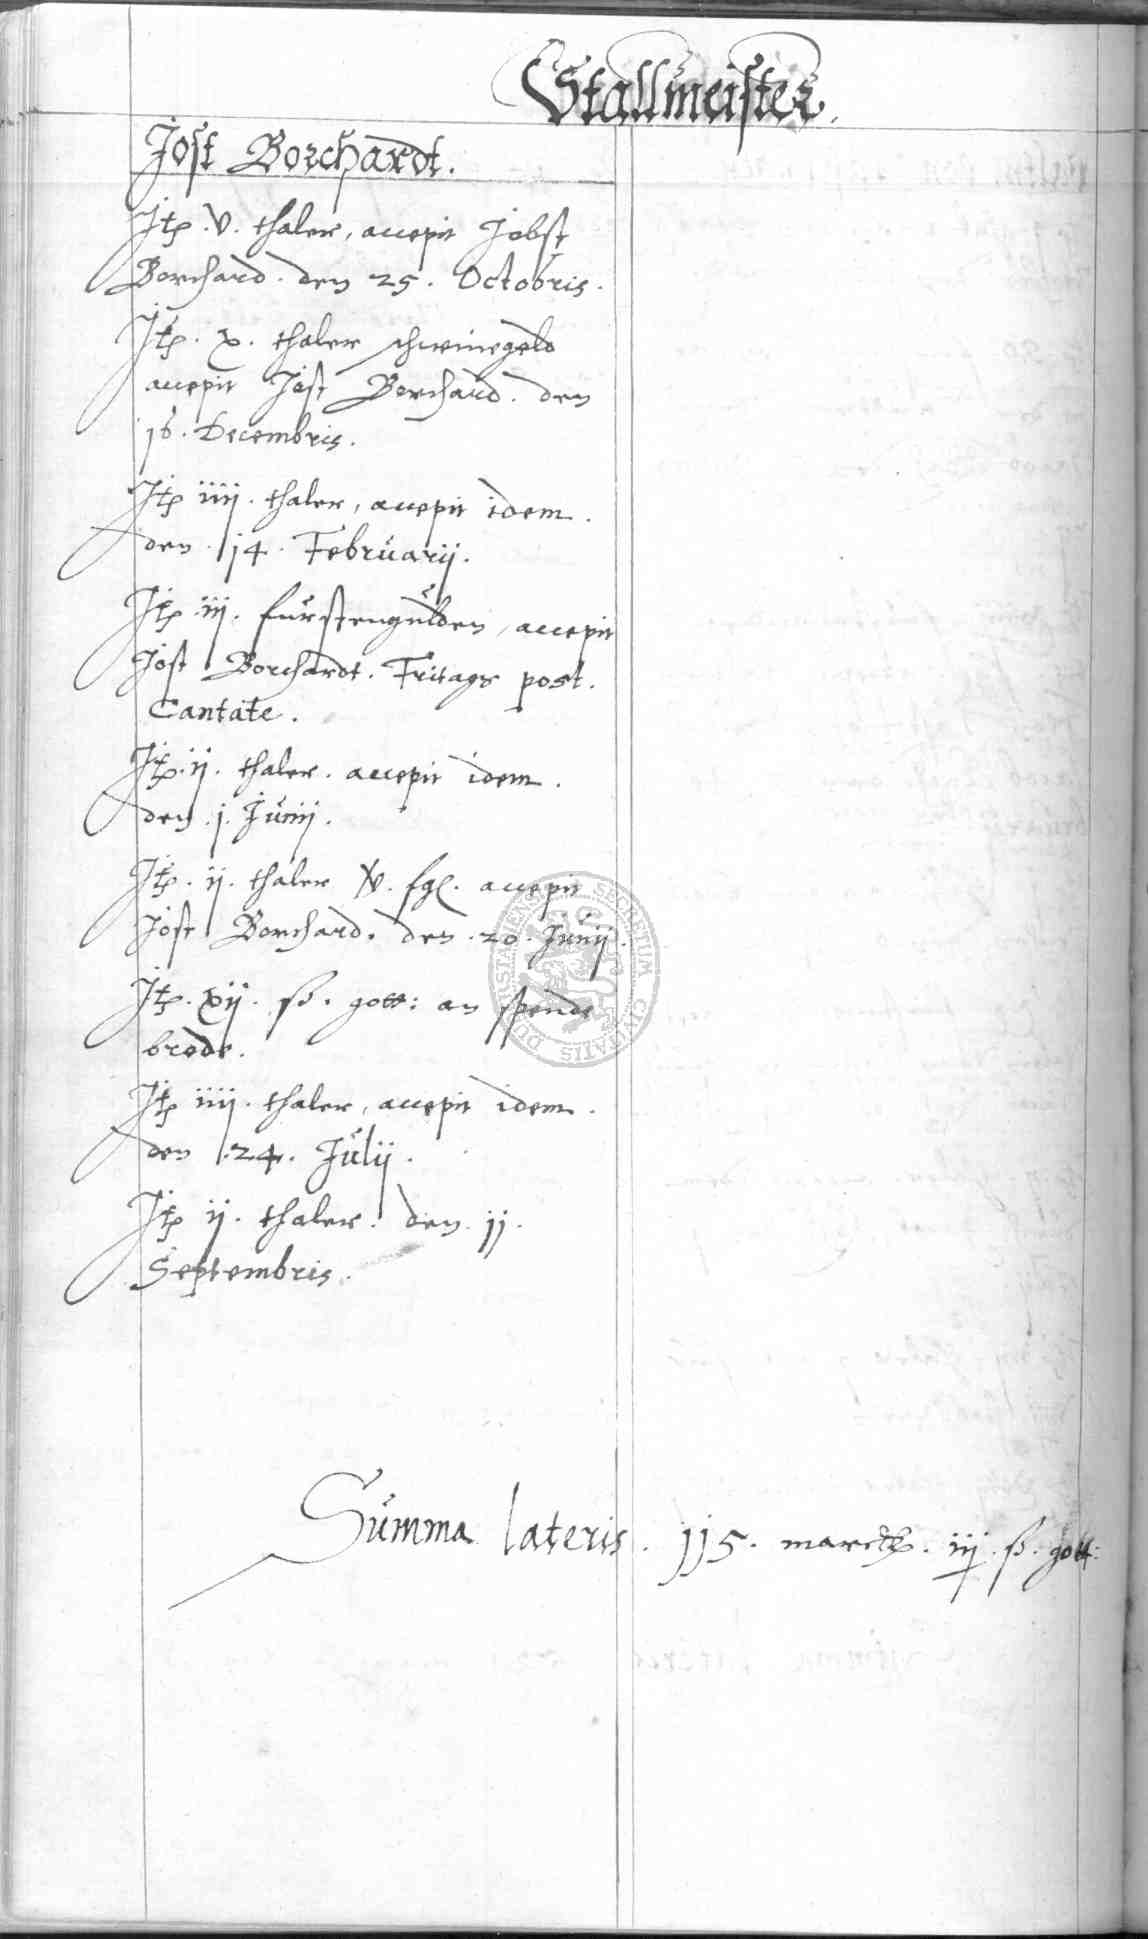 Stallmeister.
Jost Borchardt.
Jtz. v. thaler, accepit Jobst
Borchard. den 25. Octobris.
Jtz. x. thaler schweinegeld
accepit Jost Borchard. den
16. Decembris.
Jtz iiij. thaler, accepit idem.
den 14. Februarij.
Jtz iij. fürstengulden, accepit
Jost Borchardt. Fritags post.
Cantate.
Jtz. ij. thaler. accepit idem.
den j. Junij.
Jtz. ij. thaler v. fgl. accepit
Jost Borchard. den 20. Junij.
Jtz. xij. ß. gott: an spende
brode.
Jtz iiij. thaler, accepit idem.
den 24. Julij.
Jtz ij. thaler. den jj.
Septembris.
Summa lateris. jj5. marck. ß. gott:
SECRETUM CIVITATIS